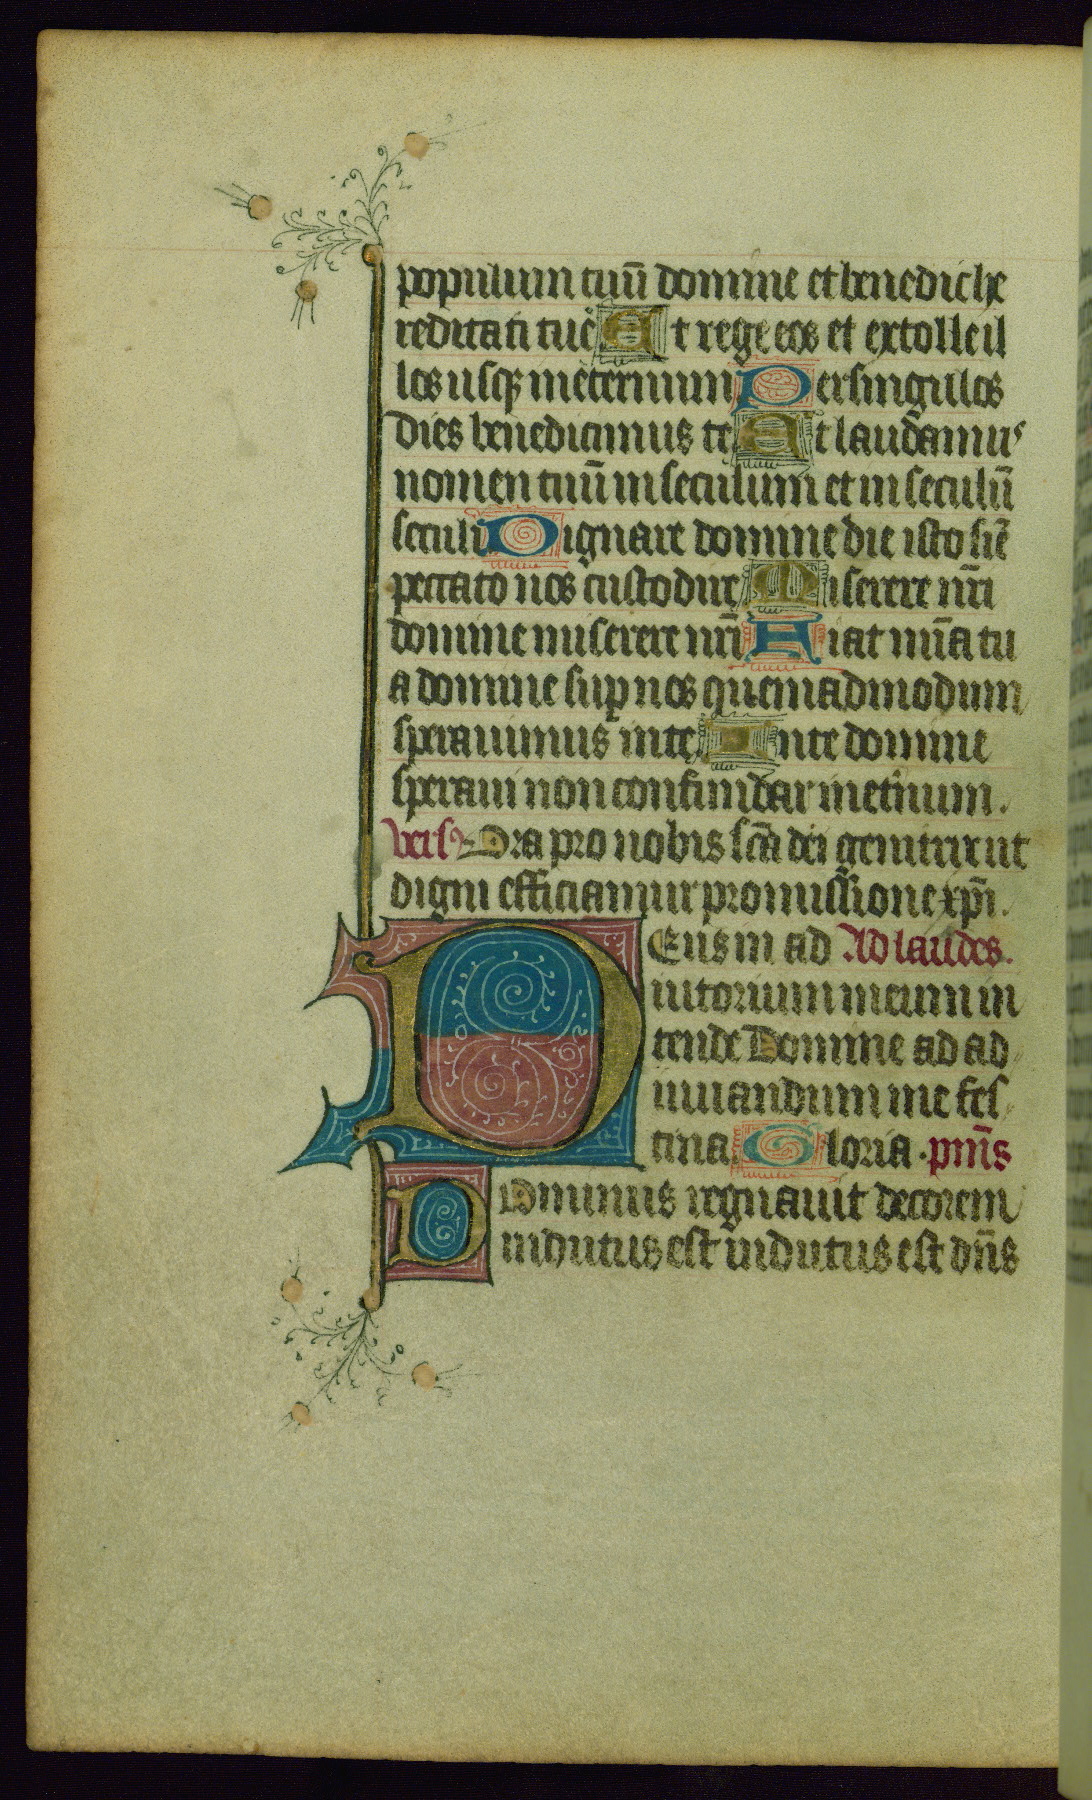 populum tuū domine et benedic he
reditati tue Et rege eos et extolle il
los usqꝫ in eternum Per singulos
dies benedicimus te Et laudamus
nomen tuū in seculum et in seculū
seculi Dignare domine die isto sine
peccato nos custodire Miserere nr̄i
domine miserere nr̄i Fiat mīa tu
a domine suꝑ nos quemadmodum
sperauimus in te In te domine
speraui non confundar in eternum.
Vers Ora pro nobis scā dei genitrix ut
digni efficiamur promissione xp̄i.
DEus in ad Ad laudes.
iutorium meum in
tende Domine ad ad
iuuandum me fes
tina. Gloria. pm̄s
DOminus regnauit decorem
indutus est indutus est dn̄s